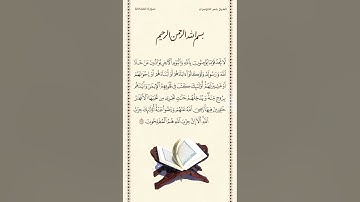 بسم الله الرحمن الرحيم
لا تجد قوما يؤمنون بالله واليوم الآخر يوادون من حاد
الله ورسوله ولو كانوا آباءهم أو أبناءهم أو إخوانهم
أو عشيرتهم أولئك كتب في قلوبهم الإيمان وأيدهم
بروح منه ويدخلهم جنات تجري من تحتها الأنهار
خالدين فيها رضي الله عنهم ورضوا عنه أولئك حزب
الله ألا إن حزب الله هم المفلحون